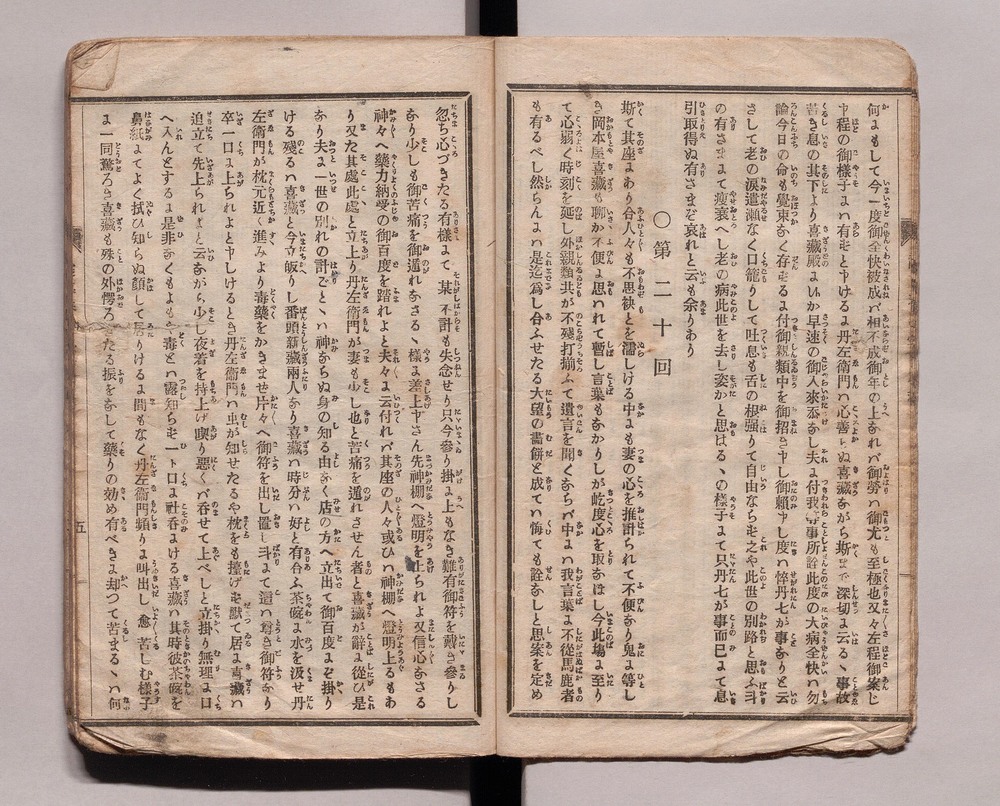 何よもして今一度御全快被成バ相不成御年の上あれバ御勞ハ御尤も至極也又々左程御案じ
申程の御樣子よハ有まじとヤけるよ丹左衞門ハ心善らぬ喜藏あがら斯まで深切よ云るゝ事故
苦き息の其下より喜藏殿よハか早速の御入來忝あし夫よ付我等事所詮此度の大病全快ハ勿
論今日の命も覺束あく存ずるよ付御親類中を御招き申し御賴申し度ハ忰丹七が事ありと云
さして老の淚遣瀨なく口籠りして吐息も舌の根强りて自由ならね之や此世の別路と思ふ斗
の有さまよて瘦衰へし老の病此世を去し姿かと思はるゝの樣子よて只丹七が事而已よて息
引取得ぬ有さまぞ哀れと云ふも余りあり
○第二十回
斯て其座よあり合人々も不思袂とを濡しける中よも妻の心を推田られて不便あり鬼よ等し
き岡本屋喜藏も聊か不便よ思われて暫し言葉もあかりしが屹度心を取あほし今此塲よ至り
て心弱く時刻を延し外親類共が不殘打揃ふて遺言を聞くあらバ中よハ我言葉よ不從馬鹿者
も有るべし然らんよハ是迄爲し合ふせたる大望の畵餠と成て悔ても詮あしと思案を定め
忽ち心づきたる有樣よて某し不計も失念せり只今參り掛よ上もなき難有御符を戴き參りし
あり少しも御苦痛を御遁れあさるゝ樣よ差上ヤさん先神棚へ燈明を上られよ又信心あさる
神々へ藥力納受の御百度を踏れよと夫々よ云付れバ其座の人々或ひハ神棚へ燈明上るもあ
り又た其處此處と立上り丹左衞門が妻も少し也と苦痛を遁れさせん者と喜藏が辭よ從ひ是
あり夫よ一世の別れの計ごとゝハ神あらぬ身の知る由あく店の方へ立出て御百度よぞ掛り
ける殘るハ喜藏と今立皈りし番頭新藏兩人あり喜藏ハ時分ハ好と有合ふ茶碗よ水を汲せ丹
左衞門が枕元近く進みより毒藥をかきませ片々へ御符を出し置し斗よて這ハ尊き御符あり
卒一口よ上られよとヤしけるとき丹左衞門ハ虫が知せたるや枕をも擡げ老默て居よ喜藏ハ
迫立て先上られよと云あがら少し夜着を持上げ喫り惡くバ呑せて上べしと立掛り無理よ口
へ入んとするよ是非あくもよもや毒とハ露知らね一ト口よ社呑よける喜藏ハ其時彼茶碗を
鼻紙よてよく拭ひ知らぬ顏して居りけるよ間もなく丹左衞門頻りよ叫出し愈苦しむ樣子
よ一同驚ろき喜藏も殊の外愕ろきたる振をあして藥りの効め有べきよ却つて苦まるゝハ何
五